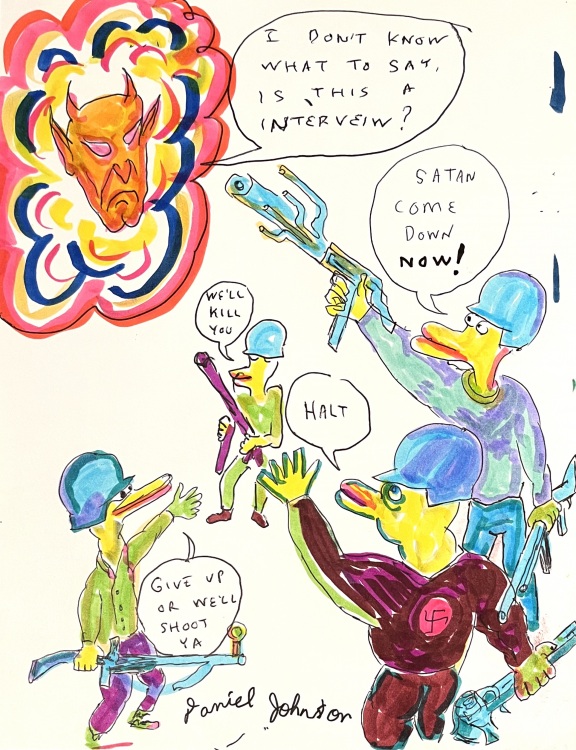 I DON'T KNOW
WHAT TO SAY,
IS THIS A
INTERVEIW?
SATAN
COME
DOWN
NOW!
WE'LL
KILL
YOU
HALT
GIVE UP
OR WE'LL
SHOOT
YA
Daniel Johnston